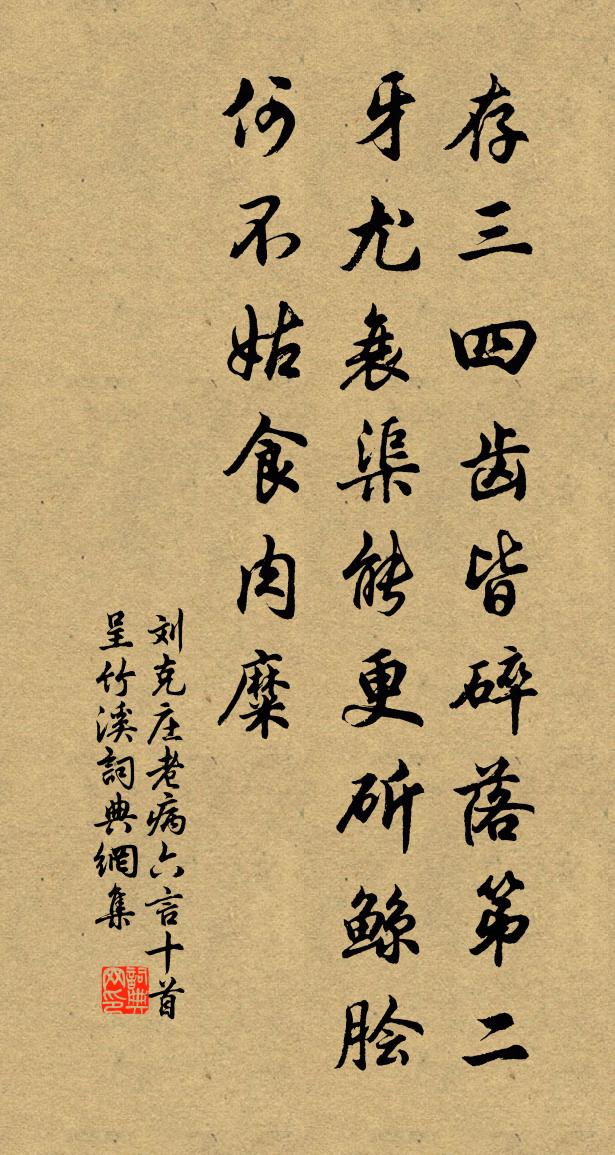 存三四齿皆碎落第二
牙尤衰渠能更斫鲸脍
何不姑食肉糜
刘克庄老病六言十首
呈竹溪詞典網集
詞典
网印